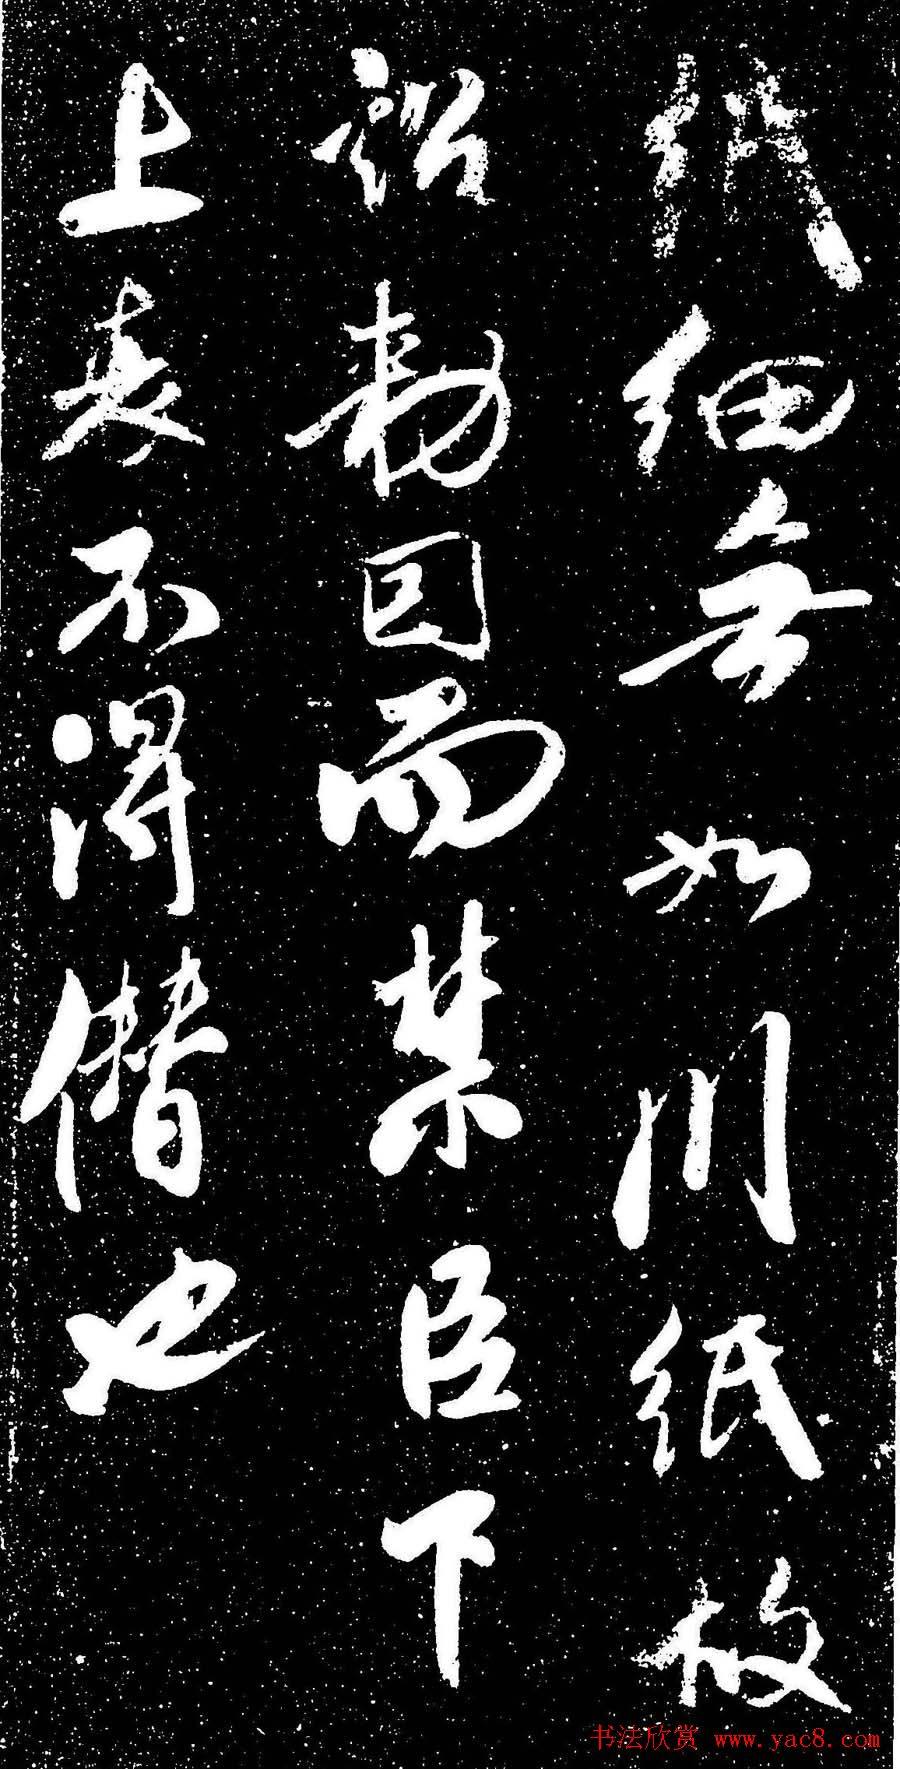 細無如川紙故
詔勅因而禁臣下
上表不得僭也
书法欣赏 www.yac8.com